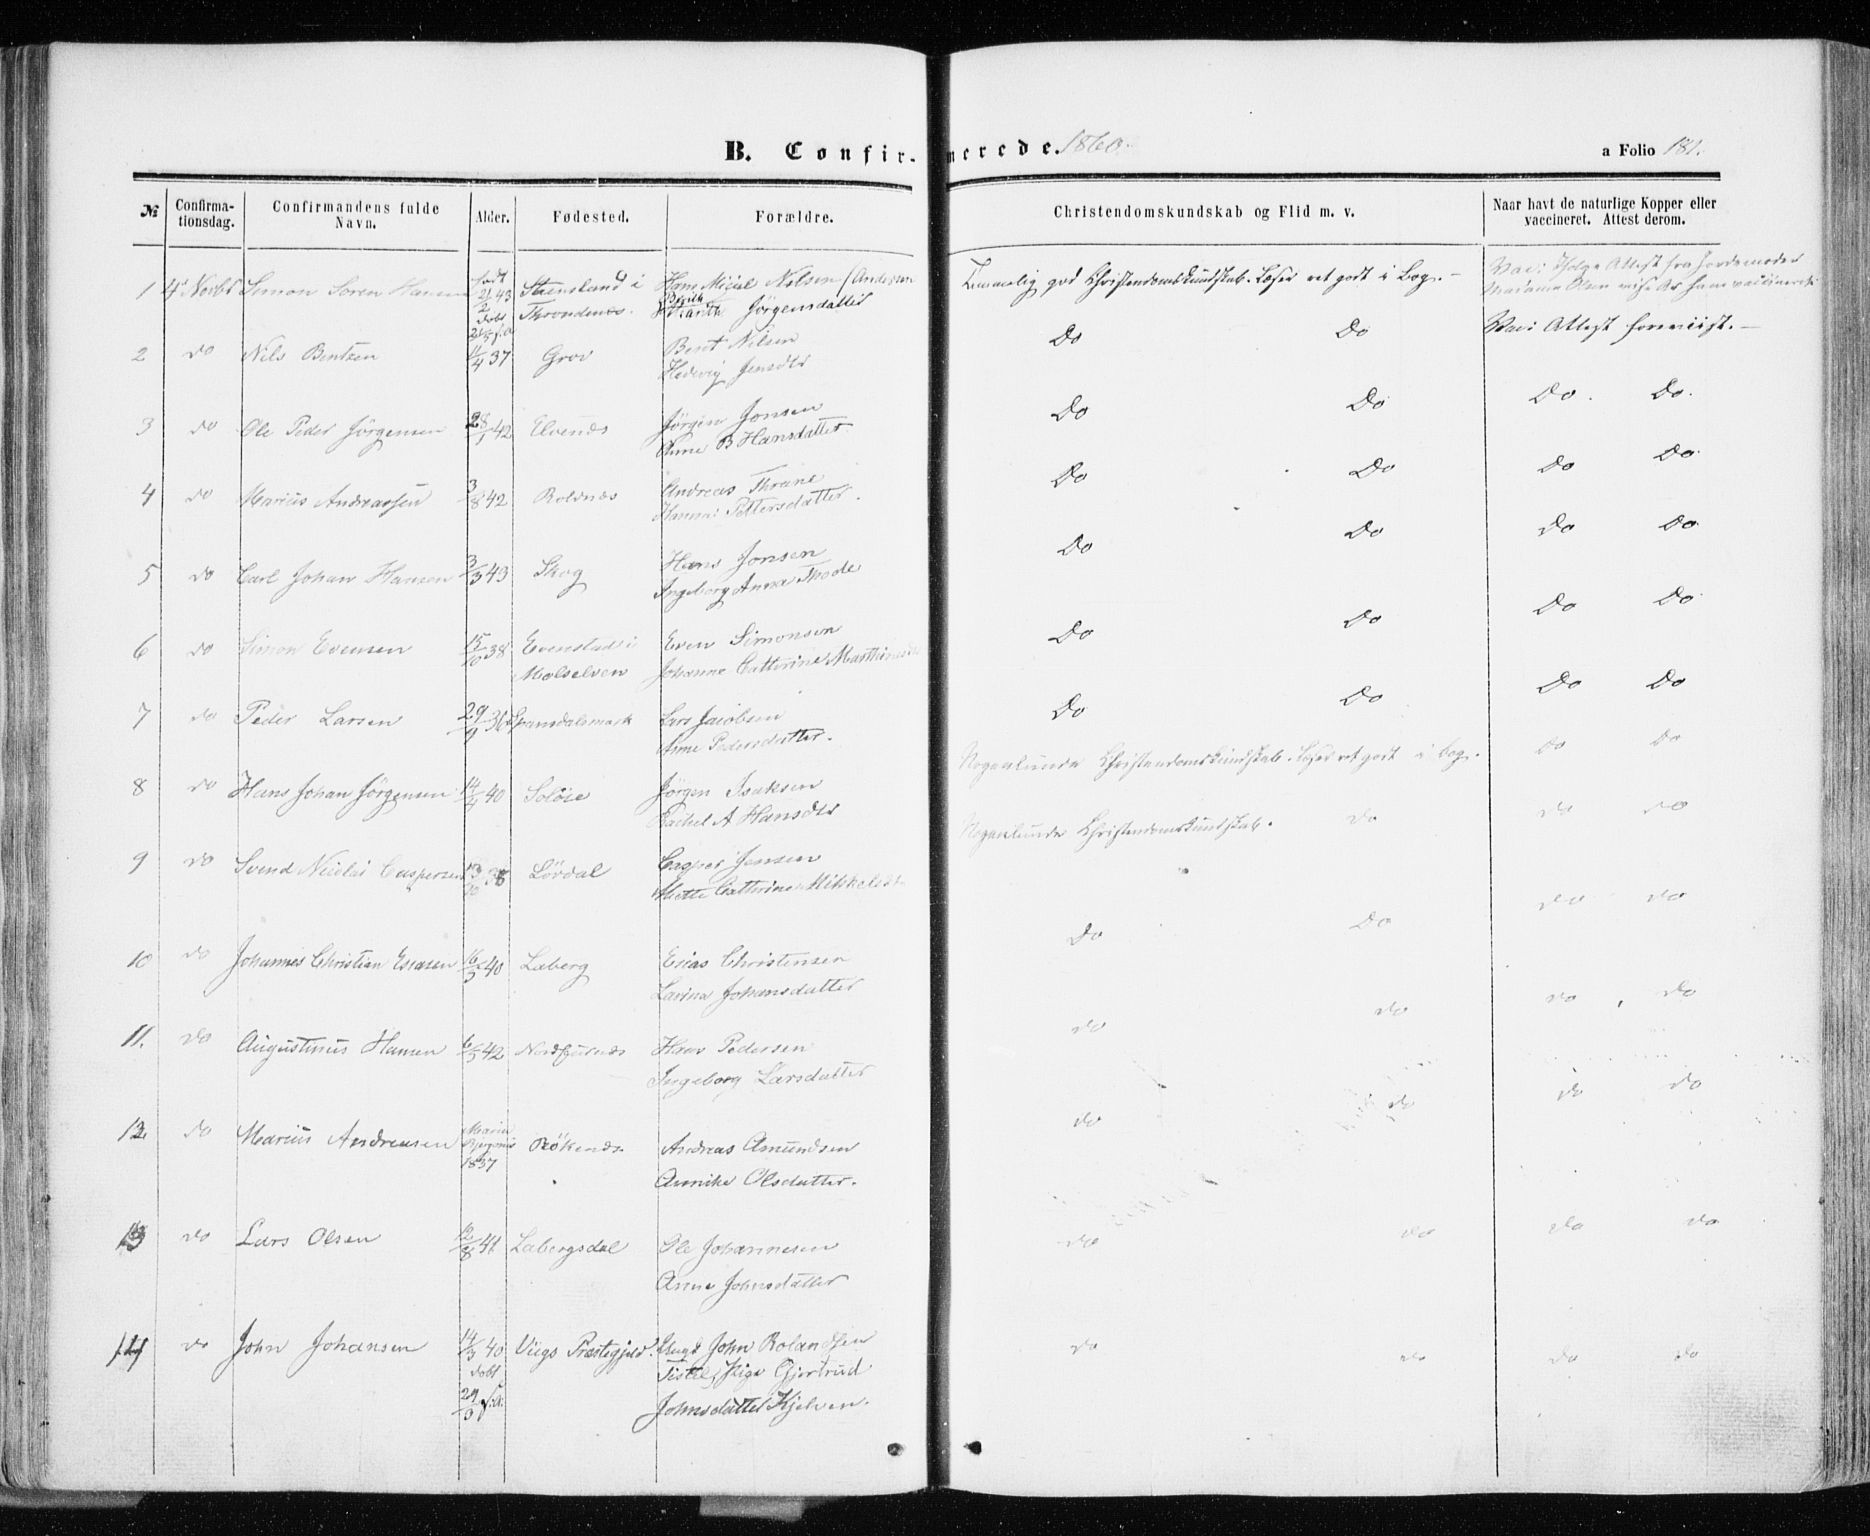 B. Confir- merede. 1860.
a Folio 181.
№ Confirma-tionsdag. Confirmandens fulde Navn. Alder. Fødested. Forældre. Christendomskundskab og Flid m. v. Naar havt de naturlige Kopper eller vaccineret. Attest derom.
1 4 Simon Soren Hansen født 21/2 43 Steensland i Hans Nilsen (Andersen
døbt Throndenes. Jörgensdatter
Temmelig god Christendomskundskab. Læser ret godt i Bog. –
Attest fra Jordemoder
Madame Olsen
2 do Nils Bentzen 11/4 37 Grov Bent Nilsen
Hedevig Jensdtr
Do Do Attest foreviist. –
3 do Ole Peder Jörgensen 28/1 42 Elvenæs Jörgen Jonsen
Anne B Hansdatter.
Do Do Do. Do.
4 do Marius Andreassen 3/8 42 Roldnæs Andreas Thrane
Pettersdatter.
Do Do Do Do
5 do Carl Johan Hansen 3/3 43 Skog Hans Jonsen
Ingeborg Anna Thode
Do Do Do Do
6 do Simon Evensen 15/10 38 Evenstad i Even Simonsen
Malselven Johanne Catterine
Do Do Do Do
7 do Peder Larsen 29/9 Spansdalsmark Lars Jacobsen
Anne Pedersdatter.
Do Do Do Do
8 do Hans Johan Jörgensen 14/4 40 Soløie Jörgen Isaksen
Rachel A Hansdtr
Nogenlunde Christendomskundskab. Læser ret godt i bog. do do
9 do Svend Nicolai Caspersen 38 Lördal Casper Jensen
Mette Cattrine
Nogenlunde Christendomskundskab. do do do
10 do Johannes Christian Esaiasen 16/3 40 Laberg Christensen
Lavina Johansdatter
Do Do do do
11. do Augustinus Hansen 6/5 42 Hans Pedersen
Ingeborg Larsdatter
do do do do
12. do Marius Andreasen Maria 1837 Rökenæs Andreas Amundsen
Annike Olsdatter.
do do do do
13 do Lars Olsen 12/8 41 Labergsdal Ole Johannesen
Anne Johnsdatter
do do do do
14 do John Johansen 14/3 40 Præstegjeld. Ungk John Rolandsen
døbt Pige Gjertrud
29/3 s.a. Johnsdatter Kjelven.
do do do do